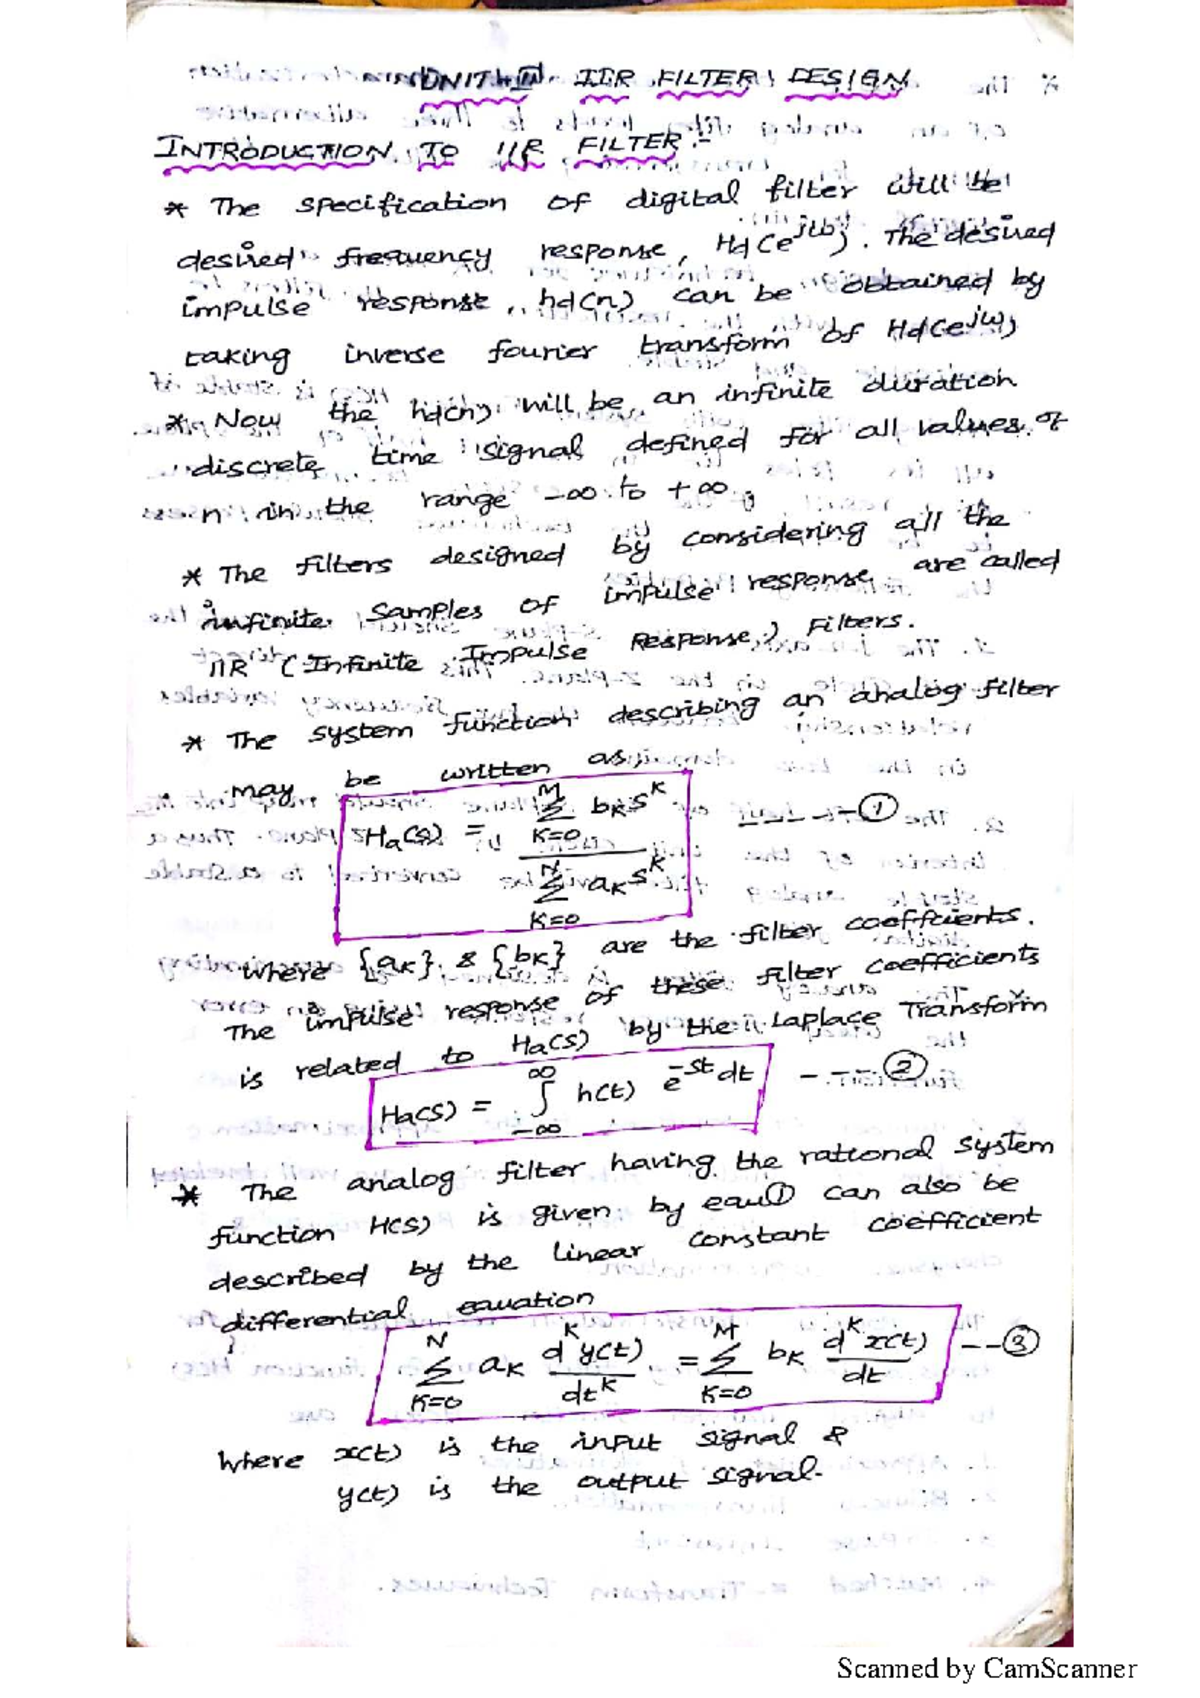 UNIT-III IIR FILTER DESIGN
INTRODUCTION TO IIR FILTER :-
* The specification of digital filter will be
desired frequency response, Hd(e^jω). The desired
impulse response, hd(n) can be obtained by
taking inverse fourier transform of Hd(e^jω)
* Now the hd(n) will be an infinite duration
discrete time signal defined for all values of
n in the range -∞ to +∞.
* The filters designed by considering all the
infinite samples of impulse response are called
IIR (Infinite Impulse Response) Filters.
* The system function describing an analog filter
may be written as,
Ha(s) = Σ_{K=0}^{M} b_K s^K / Σ_{K=0}^{N} a_K s^K --①
where {a_K} & {b_K} are the filter coefficients.
The impulse response of these filter coefficients
is related to Ha(s) by the Laplace Transform
Ha(s) = ∫_{-∞}^{∞} h(t) e^{-st} dt ---②
* The analog filter having the rational system
function H(s) is given by equ① can also be
described by the linear constant coefficient
differential equation
Σ_{K=0}^{N} a_K d^K y(t)/dt^K = Σ_{K=0}^{M} b_K d^K x(t)/dt --③
where x(t) is the input signal &
y(t) is the output signal.
Scanned by CamScanner